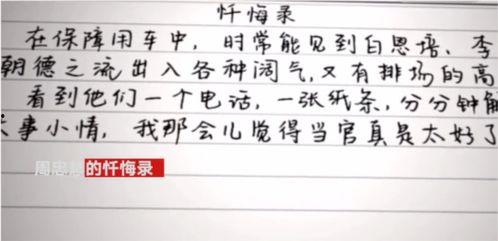 忏悔录
在保障用车中,时常能见到白恩培、李
朝德之流出入各种阔气,又有排场的高
看到他们一个电话,一张纸条,分分钟解
事小情,我那会儿觉得当官真是太好了
周忠 的忏悔录